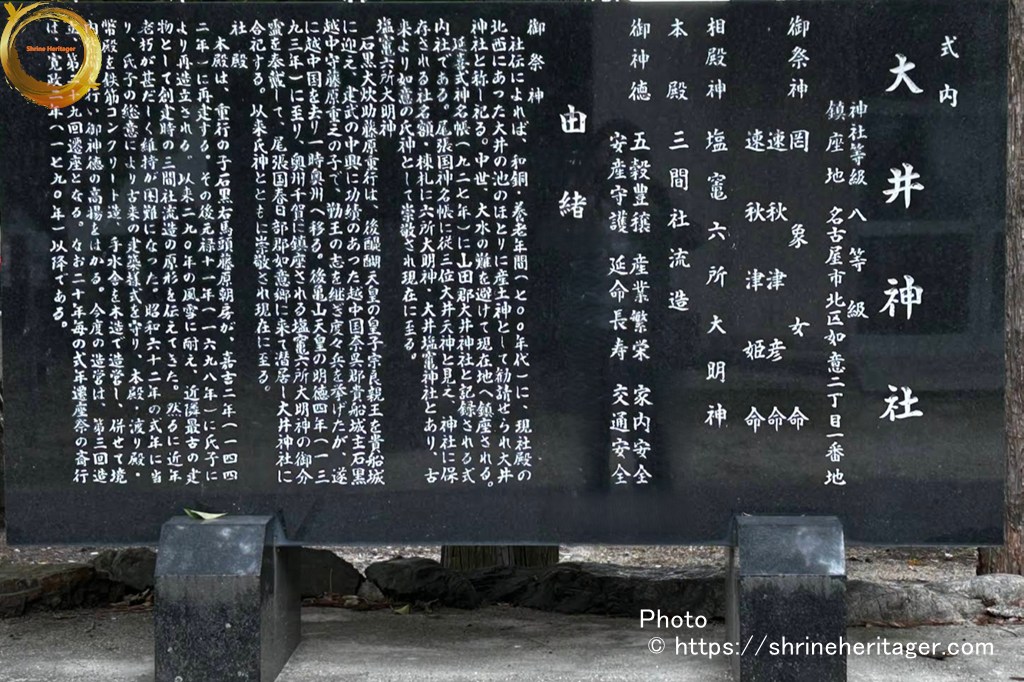 式内
大井神社
神社等級 八等級
鎮座地 名古屋市北区如意二丁目一番地
御祭神 罔象女命
速秋津彦命
速秋津姫命
相殿神 塩竈六所大明神
本殿 三間社流造
御神徳 五穀豊穣 産業繁栄 家内安全
安産守護 延命長寿 交通安全
由緒
御祭神
社伝によれば、和銅・養老年間(七〇〇年代)に、現社殿の
北西にあった大井の池のほとりに産土神として勧請せられ大井
神社と称し祀る。中世、大水の難を避けて現在地へ鎮座される。
延喜式神名帳(九二七年)に山田郡大井神社と記録される式
内社である。尾張国神名帳に従三位大井天神と見え、神社に保
存される社名額・棟札に六所大明神・大井塩竈神社とあり、古
来より如意の氏神として崇敬され現在に至る。
塩竈六所大明神
石黒大炊助藤原重行は、後醍醐天皇の皇子宗良親王を貴船城
に迎え、建武の中興に功績のあった越中国奈呉郡貴船城主石黒
越中守藤原重之の子で、勤王の志を継ぎ度々兵を挙げたが、遂
に越中国を去り一時奥州へ移る。後亀山天皇の明徳四年(一三
九三年)に至り、奥州千賀に鎮座される塩竈六所大明神の御分
霊を奉戴して、尾張国春日部郡如意郷に来て潜居し大井神社に
合祀する。以来氏神とともに崇敬され現在に至る。
社殿
本殿は、重行の子石黒右馬頭藤原朝房が、嘉吉二年(一四四
二年)に再建する。その後元禄十一年(一六九八年)に氏子に
より再造立される。以来二九〇年の風雪に耐え、近隣最古の建
物として創建時の三間社流造の原形を伝えてきた。然るに近年
老朽が甚だしく維持が困難になった。昭和六十二年の式年に当
り、氏子の総意により古来の建築様式を守り、本殿・渡り殿・
幣殿を鉄筋コンクリート造、手水舎を木造で造営し、併せて境
内 い御神徳の高揚をはかる。今度の造営は、第三回造
第 九回遷座となる。なお二十年毎の式年遷座祭の斎行
は、寛政二年(一七九〇年)以降である。
Shrine Heritager
Photo
© https://shrineheritager.com